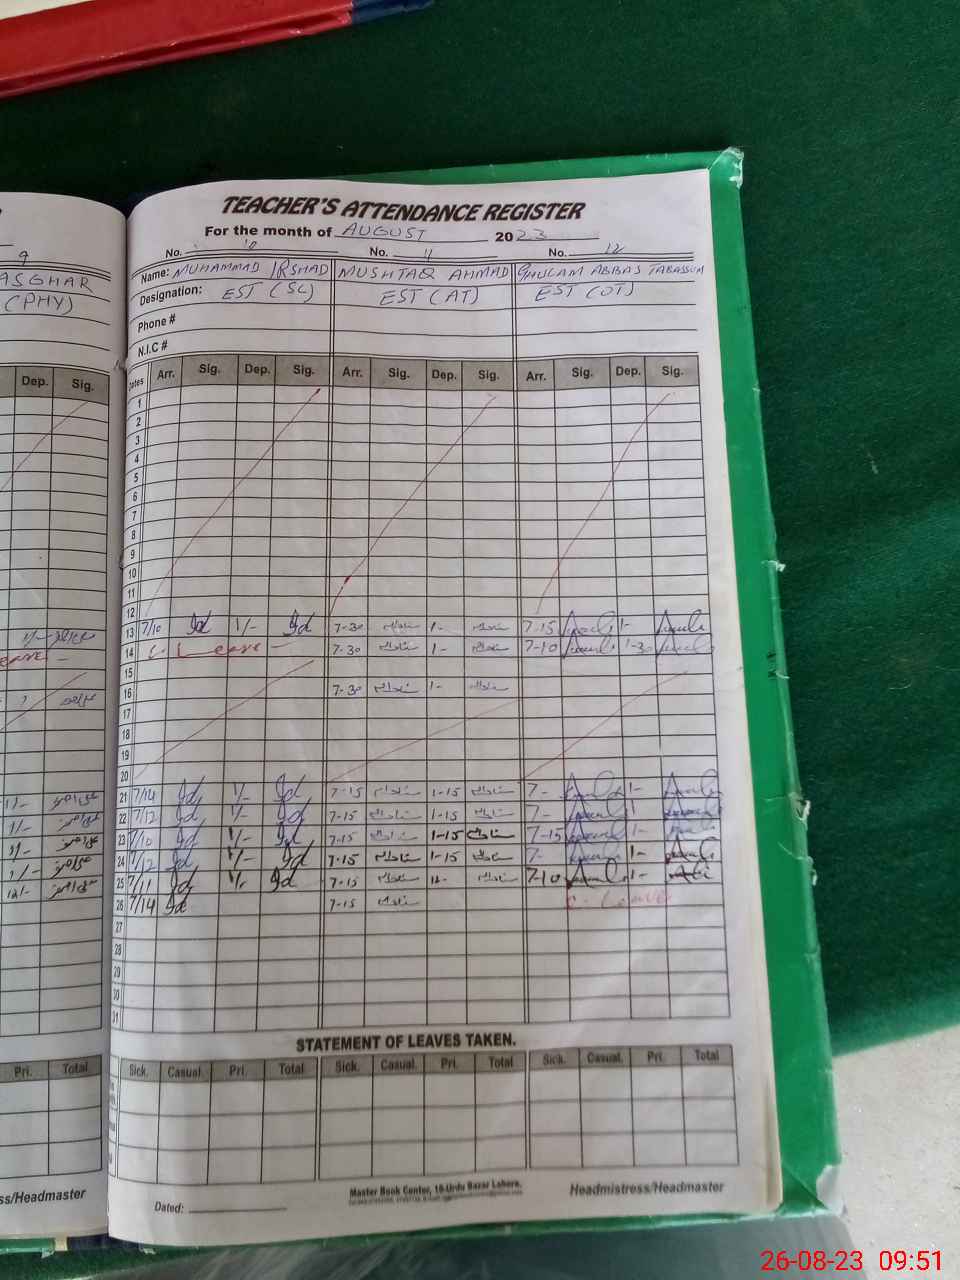 9
ASGHAR
(PHY)
Dep. Sig.
1/-
Leave -
1/-
1/-
1/-
1/-
12/-
Pri. Total
ss/Headmaster
TEACHER'S ATTENDANCE REGISTER
For the month of AUGUST 2023
No. 10 No. 11 No. 12
Name: MUHAMMAD IRSHAD MUSHTAQ AHMAD GHULAM ABBAS TABASSUM
Designation: EST (SC) EST (AT) EST (OT)
Phone #
N.I.C #
Dates Arr. Sig. Dep. Sig. Arr. Sig. Dep. Sig. Arr. Sig. Dep. Sig.
1
2
3
4
5
6
7
8
9
10
11
12
13 7/10 1/- 7-30 1- 7-15 1-
14 C- Leave - 7-30 1- 7-10 1-30
15
16 7-30 1-
17
18
19
20
21 7/14 1/- 7-15 1-15 7- 1-
22 7/12 1/- 7-15 1-15 7- 1-
23 7/10 1/- 7-15 1-15 7-15 1-
24 7/12 1/- 7-15 1-15 7- 1-
25 7/11 1/- 7-15 12- 7-10 1-
26 7/14 7-15 C- Leave
27
28
29
30
31
STATEMENT OF LEAVES TAKEN.
Sick. Casual. Pri. Total Sick. Casual. Pri. Total Sick. Casual. Pri. Total
Master Book Center, 16-Urdu Bazar Lahore.
Dated: Headmistress/Headmaster
26-08-23 09:51